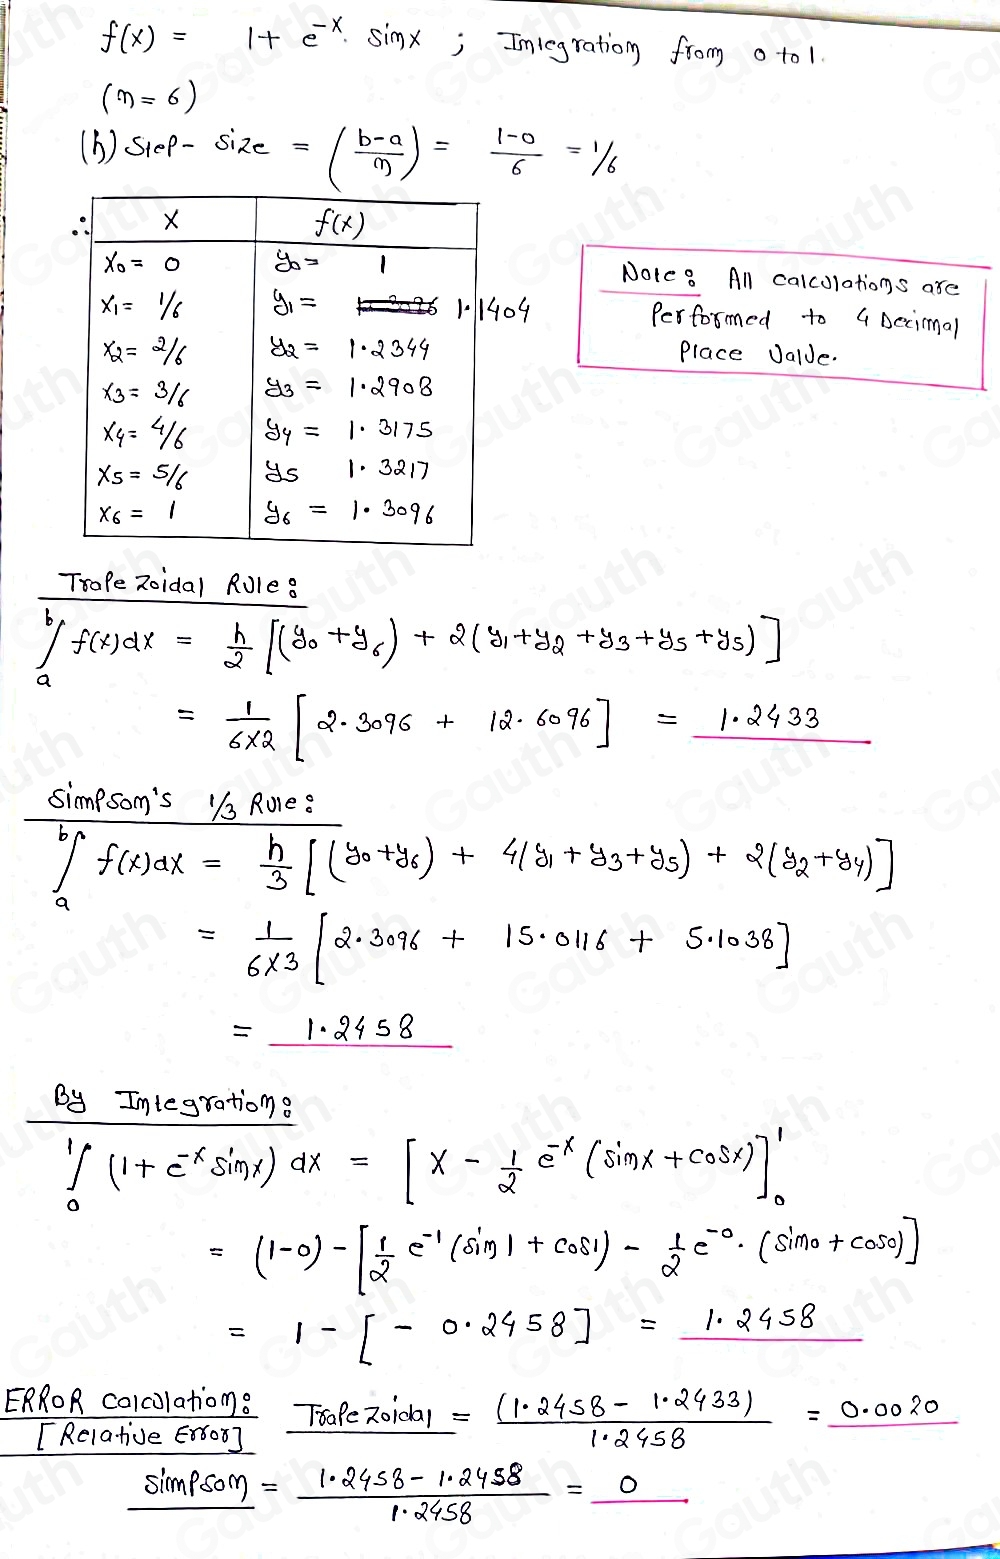 f(x) = 1 + e^-x. sinx ; Integration from 0 to 1.
(n = 6)
(h) Step-size = ((b-a)/n) = (1-0)/6 = 1/6
∴ x f(x)
x0 = 0 y0 = 1
x1 = 1/6 y1 = 1.1404
x2 = 2/6 y2 = 1.2344
x3 = 3/6 y3 = 1.2908
x4 = 4/6 y4 = 1.3175
x5 = 5/6 y5 1.3217
x6 = 1 y6 = 1.3096
Note: All calculations are
Performed to 4 Decimal
Place Value.
Trapezoidal Rule:
∫_a^b f(x)dx = h/2 [(y0 + y6) + 2(y1 + y2 + y3 + y5 + y5)]
= 1/(6×2) [2.3096 + 12.6096] = 1.2433
Simpson's 1/3 Rule:
∫_a^b f(x)dx = h/3 [(y0 + y6) + 4(y1 + y3 + y5) + 2(y2 + y4)]
= 1/(6×3) [2.3096 + 15.0116 + 5.1038]
= 1.2458
By Integration:
∫_0^1 (1 + e^-x sinx) dx = [x - 1/2 e^-x (sinx + cosx)]_0^1
= (1-0) - [1/2 e^-1 (sin1 + cos1) - 1/2 e^-0. (sin0 + cos0)]
= 1 - [- 0.2458] = 1.2458
ERROR Calculation:
[Relative Error]
Trapezoidal = (1.2458 - 1.2433)/1.2458 = 0.0020
Simpson = (1.2458 - 1.2458)/1.2458 = 0
Gauth